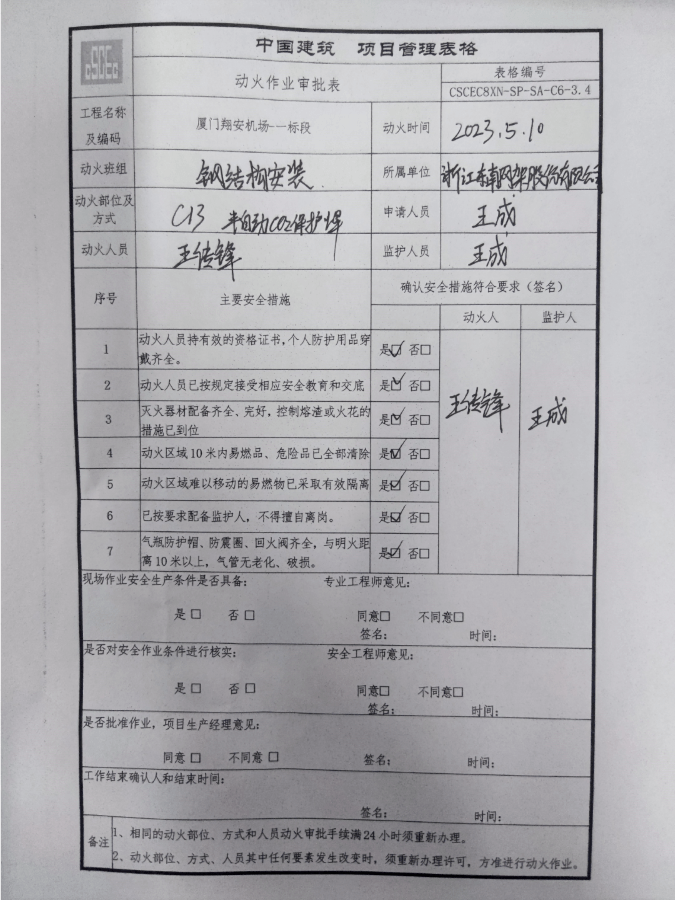 CSCEC
中国建筑 项目管理表格
动火作业审批表
表格编号
CSCEC8XN-SP-SA-C6-3.4
工程名称
及编码
厦门翔安机场-一标段
动火时间
2023.5.10
动火班组
钢结构安装
所属单位
浙江东南网架股份有限公司
动火部位及
方式
C13 半自动CO2保护焊
申请人员
王成
动火人员
王传锋
监护人员
王成
序号
主要安全措施
确认安全措施符合要求（签名）
动火人
监护人
1
动火人员持有效的资格证书,个人防护用品穿
戴齐全。
是☑ 否□
2
动火人员已按规定接受相应安全教育和交底
是☑ 否□
王传锋
王成
3
灭火器材配备齐全、完好，控制熔渣或火花的
措施已到位
是☑ 否□
4
动火区域10米内易燃品、危险品已全部清除
是☑ 否□
5
动火区域难以移动的易燃物已采取有效隔离
是☑ 否□
6
已按要求配备监护人，不得擅自离岗。
是☑ 否□
7
气瓶防护帽、防震圈、回火阀齐全，与明火距
离10米以上，气管无老化、破损。
是☑ 否□
现场作业安全生产条件是否具备： 专业工程师意见：
是□ 否□ 同意□ 不同意□
签名： 时间：
是否对安全作业条件进行核实： 安全工程师意见：
是□ 否□ 同意□ 不同意□
签名： 时间：
是否批准作业，项目生产经理意见：
同意□ 不同意□ 签名： 时间：
工作结束确认人和结束时间：
签名： 时间：
备注
1、相同的动火部位、方式和人员动火审批手续满24小时须重新办理。
2、动火部位、方式、人员其中任何要素发生改变时，须重新办理许可，方准进行动火作业。